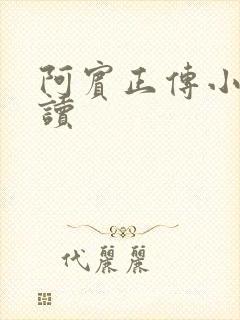 阿賓正傳小
讀
代麗麗